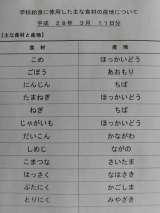 学校給食に使用した主な食材の産地について
平成 28年 3月 11日分
【主な食材と産地】
食 材 産 地
こめ ほっかいどう
ごぼう あおもり
にんじん ちば
たまねぎ ほっかいどう
ねぎ ちば
じゃがいも ほっかいどう
だいこん かながわ
しめじ ながの
こまつな さいたま
はっさく
ぶたにく かごしま
とりにく みやざき